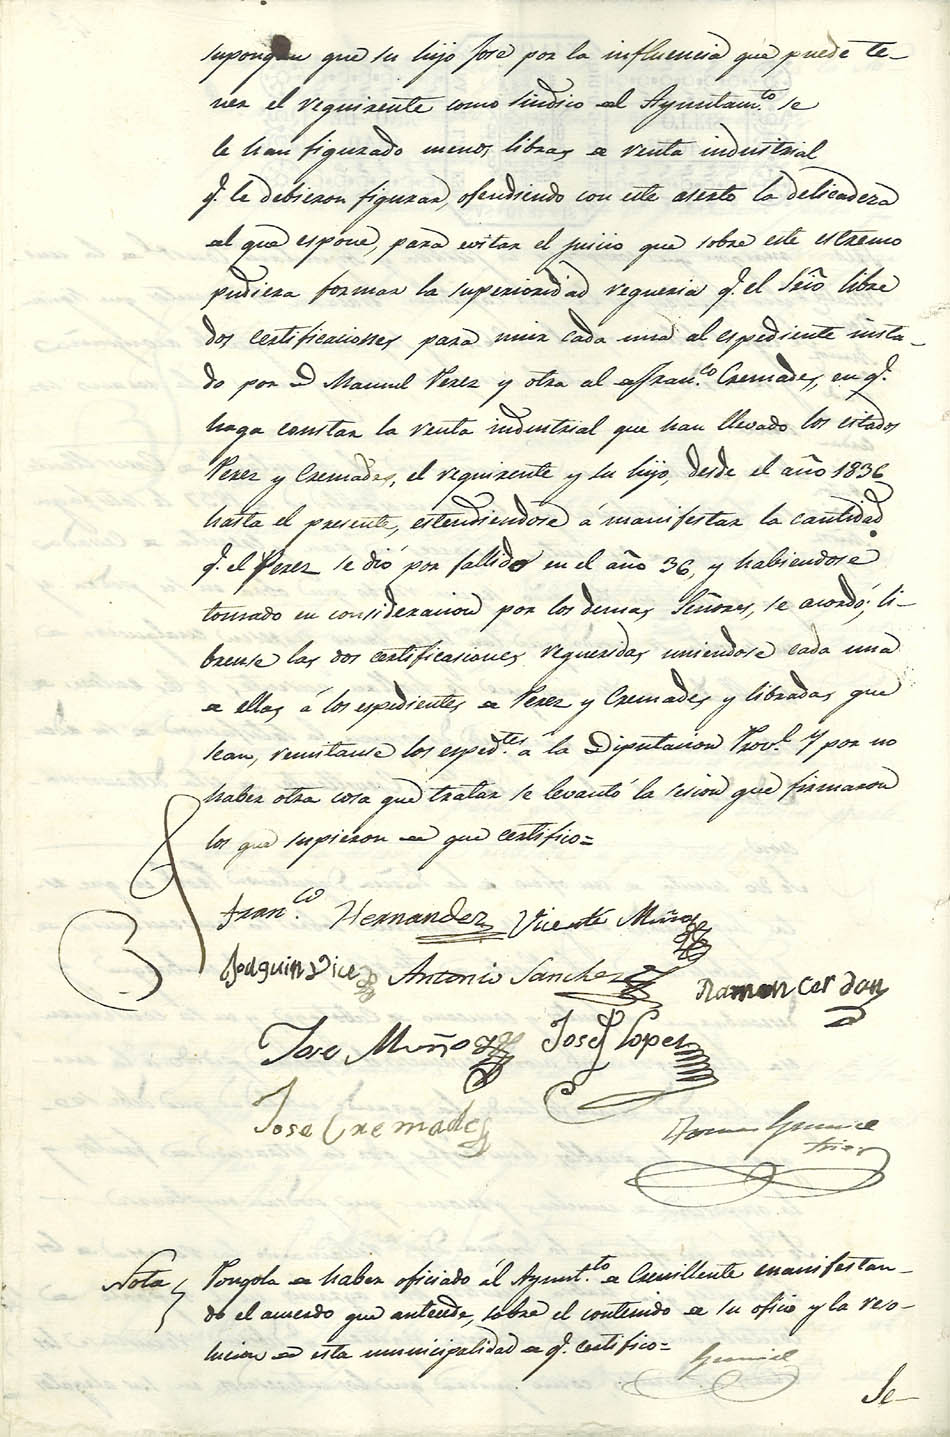 supongan que su hijo José por la influencia que puede te-
ner el requirente como síndico del Ayuntam.to se
le han figurado menos libras de venta industrial
q.e le debieron figurar, ofendiendo con este aserto la delicadeza
del que espone, para evitar el juicio que sobre este estremo
pudiera formar la superioridad requeria q.e el Srio libre
dos certificaciones para unir cada una al espediente insta-
do por D Manuel Perez y otra al de Fran.co Cremades, en q.e
haga constar la venta industrial que han llevado los citados
Perez y Cremades, el requirente y su hijo, desde el año 1836
hasta el presente, estendiendose á manifestar la cantidad
q.e el Perez se dió por fallido en el año 36, y habiendose
tomado en consideracion por los demas Señores, se acordó; li-
brense las dos certificaciones requeridas uniendose cada una
de ellas á los espedientes de Perez y Cremades y libradas que
sean, remitanse los esped.tes á la Diputacion Prov.l Y por no
haber otra cosa que tratar se levantó la sesion que firmaron
los que supieron de que certifico=
Fran.co Hernandez Vicente Muños
Joaquin Antonio Sanchez
Ramon Cerdan
Jose Muños Josef Lopez
Jose Cremades
Nota Pongola de haber oficiado ál Ayunt.to de Crevillente manifestan-
do el acuerdo que antecede, sobre el contenido de su oficio y la reso-
lucion de esta municipalidad de q.e certifico=
Se-